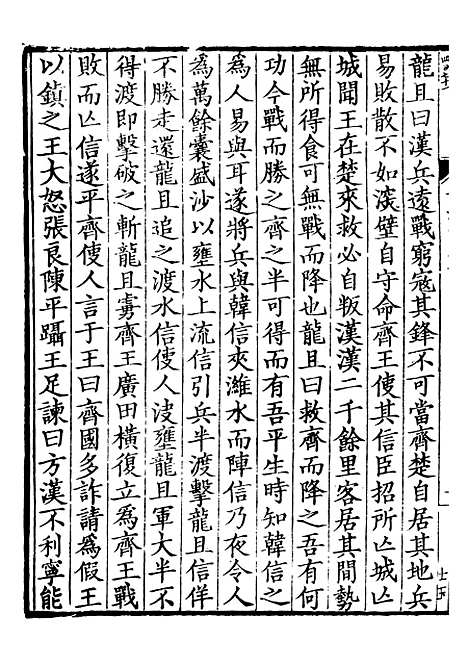 龍且曰漢兵遠戰窮寇其鋒不可當齊楚自居其地兵
易敗散不如深壁自守命齊王使其信臣招所亡城亡
城聞王在楚來救必自叛漢漢二千餘里客居其間勢
無所得食可無戰而降也龍且曰救齊而降之吾有何
功今戰而勝之齊之半可得而有吾平生時知韓信之
為人易與耳遂將兵與韓信夾濰水而陣信乃夜令人
為萬餘囊盛沙以壅水上流信引兵半渡擊龍且信佯
不勝走還龍且追之渡水信使人决壅龍且軍大半不
得渡即擊破之斬龍且虜齊王廣田橫復立為齊王戰
敗而亡信遂平齊使人言于王曰齊國多詐請為假王
以鎮之王大怒張良陳平躡王足諫曰方漢不利寧能